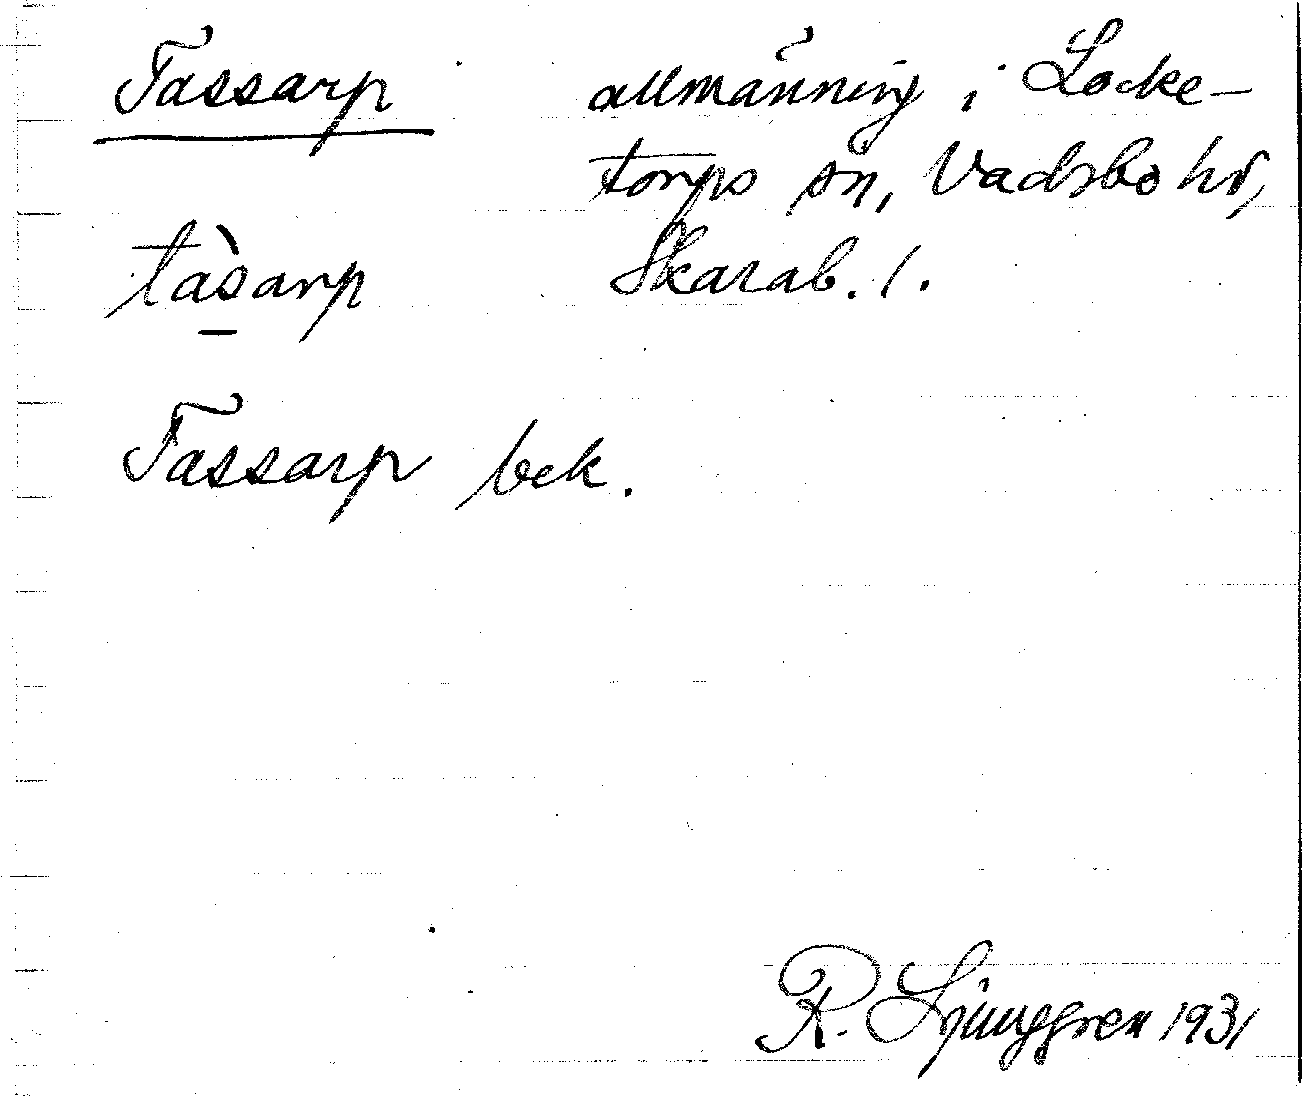 Tassarp allmänning i Locke-
torps sn, Vadsbo hd,
tàs̠arp Skarab. l.
Tassarp bek.
R. Ljunggren 1931